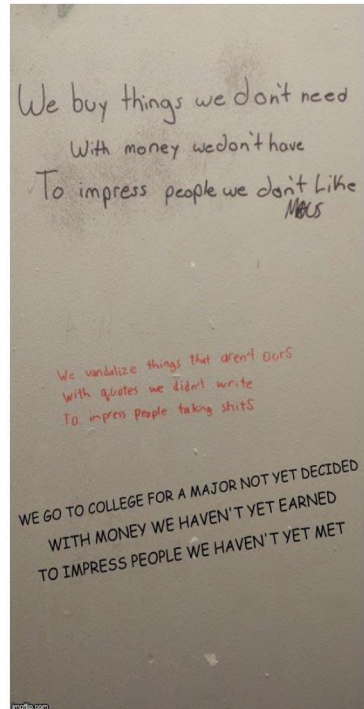 We buy things we don't need
With money we don't have
To impress people we don't Like
We vandalize things that aren't ours
With quotes we didn't write
To impress people taking shits
WE GO TO COLLEGE FOR A MAJOR NOT YET DECIDED
WITH MONEY WE HAVEN'T YET EARNED
TO IMPRESS PEOPLE WE HAVEN'T YET MET
imgflip.com